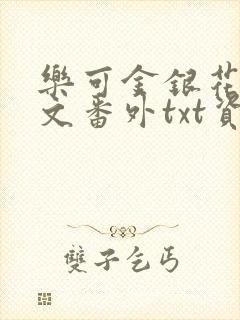 樂可金銀花
文番外txt資
雙子乞丐